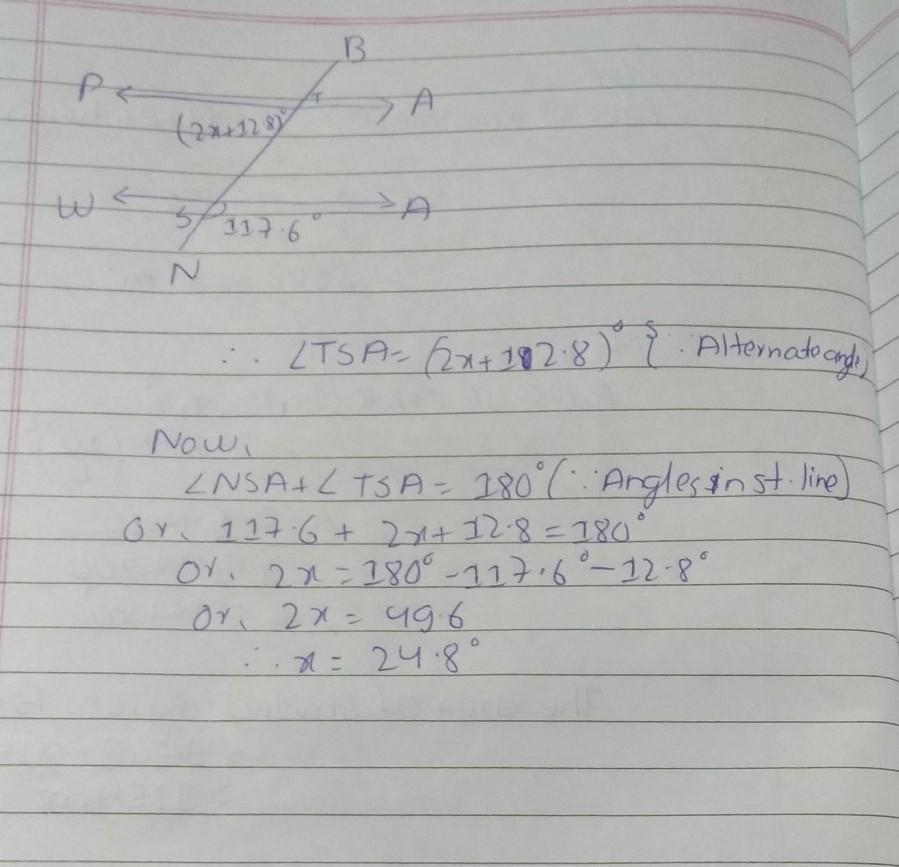 B
P T A
(2x+12.8)°
W A
S 117.6°
N
∴ ∠TSA = (2x+12.8)° { ∵ Alternate angle}
Now,
∠NSA + ∠TSA = 180° (∵ Angles in st. line)
Or, 117.6 + 2x + 12.8 = 180°
Or, 2x = 180° - 117.6° - 12.8°
Or, 2x = 49.6
∴ x = 24.8°